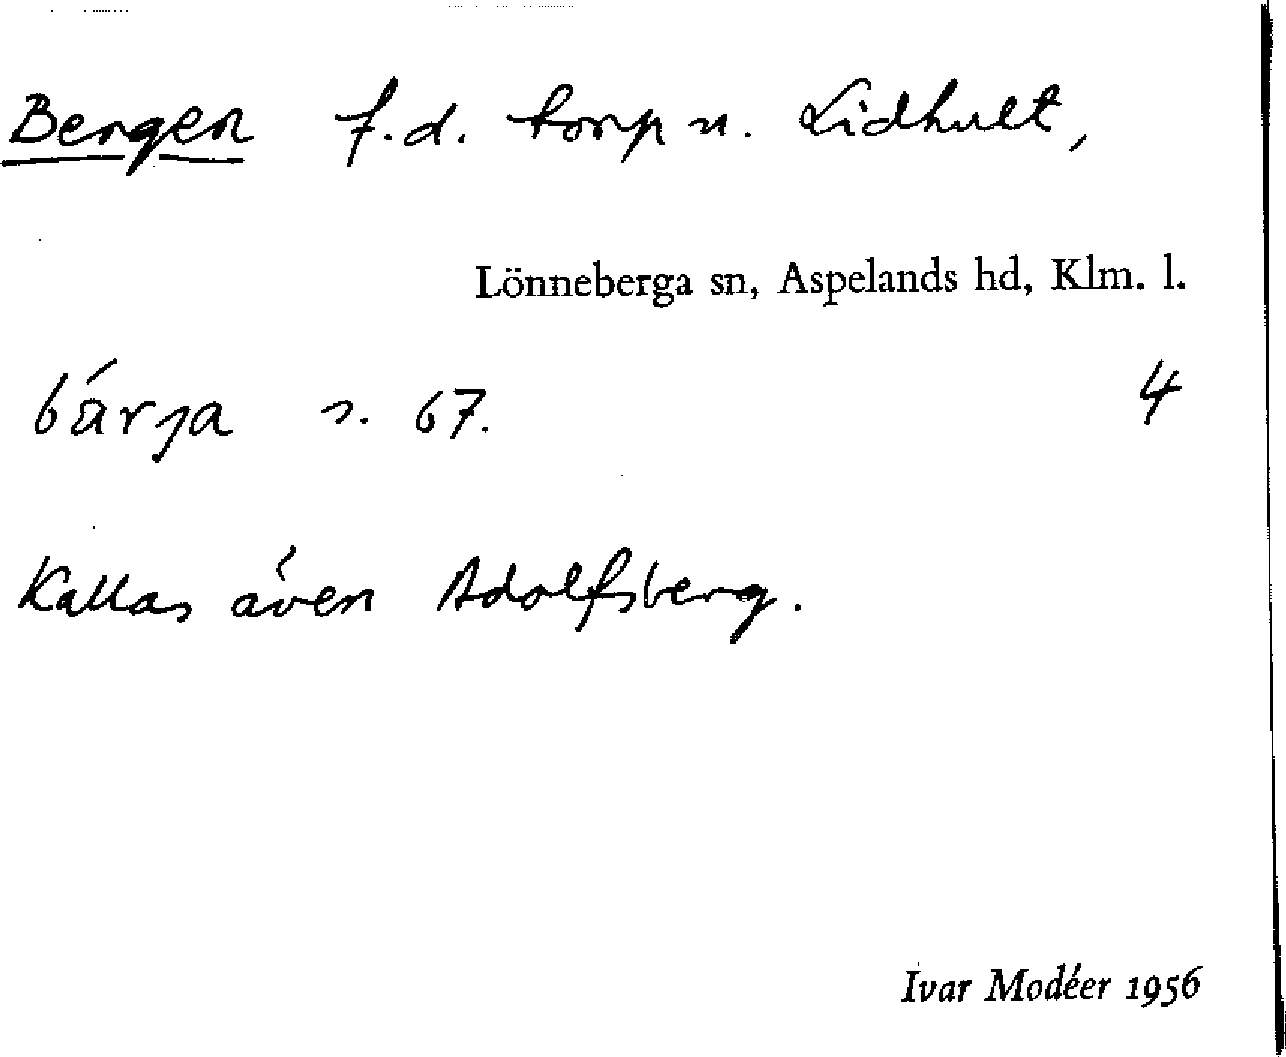 Bergen f.d. torp u. Lidhult,
Lönneberga sn, Aspelands hd, Klm. l.
bä́rja s. 67. 4
Kallas även Adolfsberg.
Ivar Modéer 1956